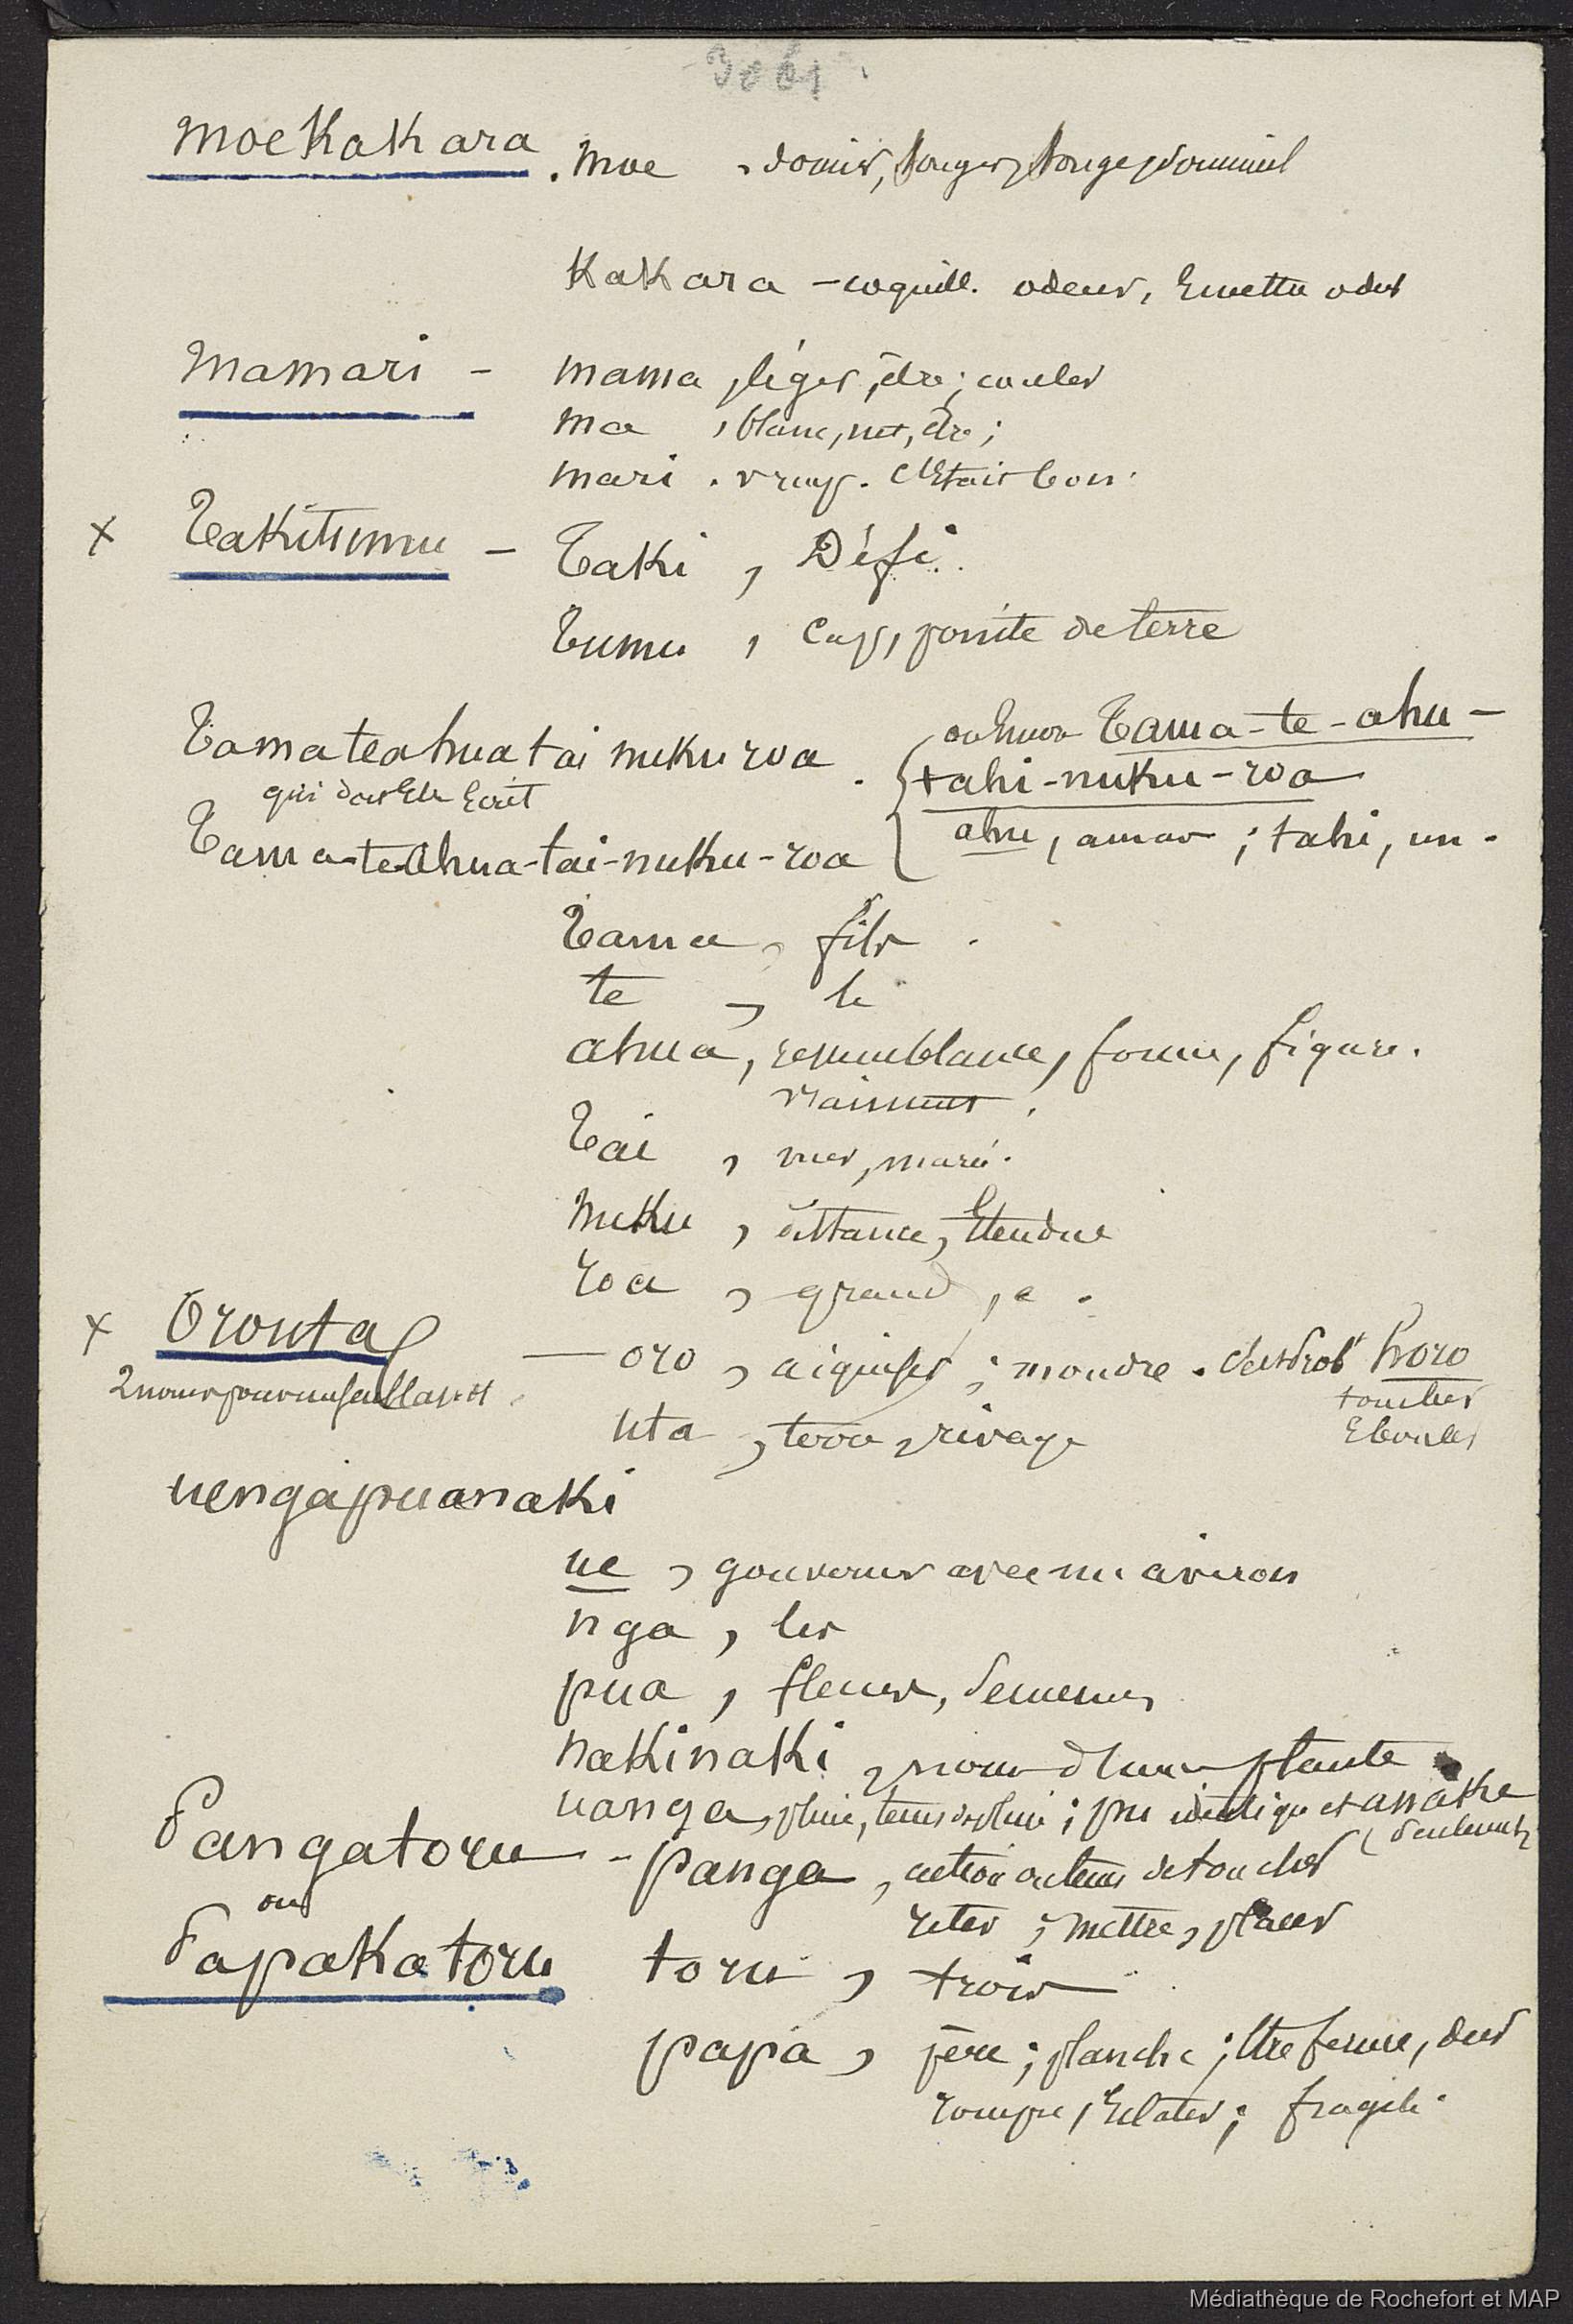 MoeKaKara . Moe , dormir, songer, songe, sommeil
KaKara - coquill. odeur, Emettre odeur
Mamari - mama , léger, être ; couler
ma , blanc, net, être ;
mari . C'Etait bon
x TaKitumu - TaKi , Défi.
Tumu , Cap, pointe de terre
Tamateahuatai nuKuroa .
qui doit Etre Ecrit
Tama-te-Ahua-tai-nuKu-roa
ou Tama-te-ahu-
tahi-nuKu-roa
ahu, amas ; tahi, un.
Tama , fils .
te , le
ahua , ressemblance, forme, figure.
vraiment .
Tai , mer, marée.
nuKu , distance, Etendue
roa , grand, e .
x Orouta — oro , aiguiser ; moudre . C'est prob^t horo
tomber
Ebouler
uta , terre, rivage
uengapuanaKi
ue , gouverner avec un aviron
nga , les
pua , fleurs, Semences
naKinaKi , nom d'une plante
uanga , pluie, tems de pluie ; anaKe
seulement
Pangatoru - panga , action ou tems de toucher
jeter ; mettre, placer
ou
PapaKatoru toru , trois
papa , père ; planche ; Etre ferme, dur
rompre, Eclater ; fragile.
Médiathèque de Rochefort et MAP